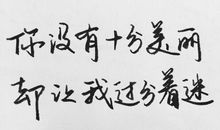 你没有十分美丽
却让我过分着迷